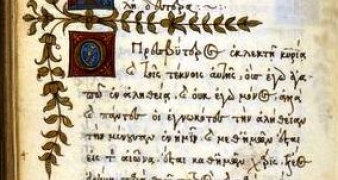 Πρεσβύτερος ἐκλεκτῇ κυρίᾳ
καὶ τοῖς τέκνοις αὐτῆς, οὓς ἐγὼ ἀγα
πῶ ἐν ἀληθείᾳ, καὶ οὐκ ἐγὼ μόνος, ἀλλὰ
καὶ πάντες οἱ ἐγνωκότες τὴν ἀλήθειαν τὴν
μένουσαν ἐν ἡμῖν καὶ μεθ' ἡμῶν ἔσται
εἰς τὸν αἰῶνα ἔσται μεθ' ἡμῶν χάρις